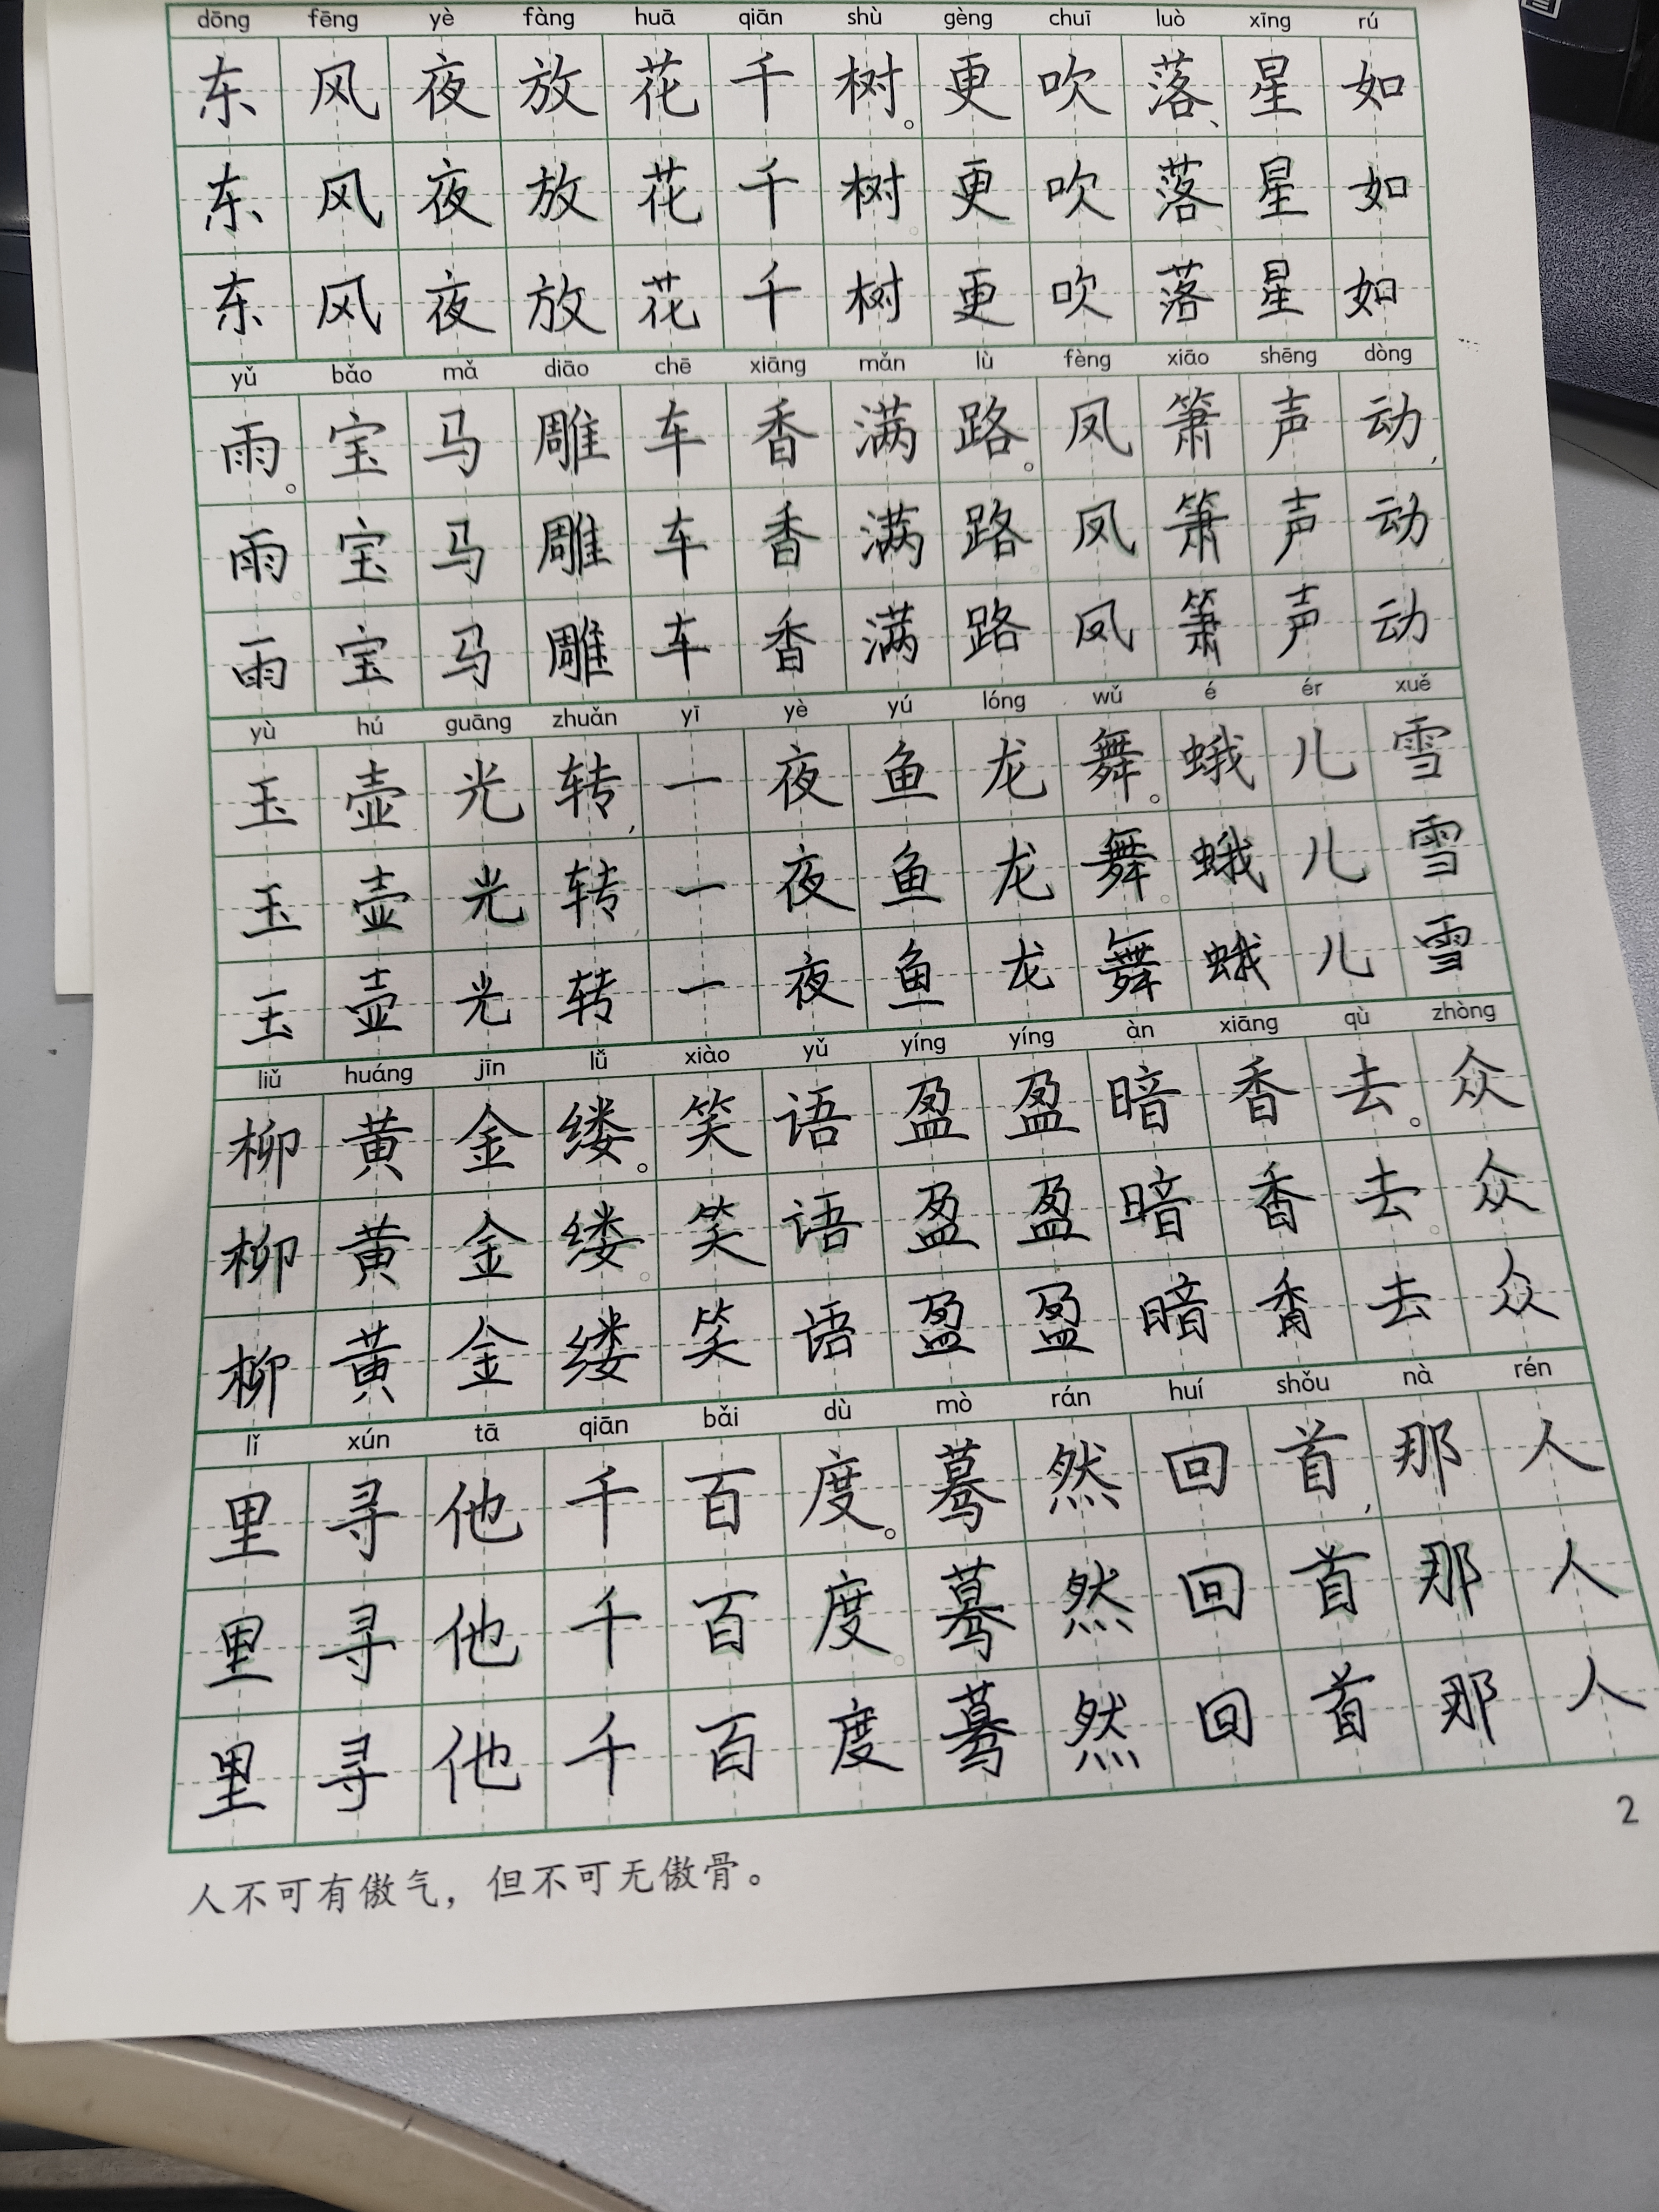 dōng fēng yè fàng huā qiān shù gèng chuī luò xīng rú
东风夜放花千树。更吹落、星如
东风夜放花千树。更吹落、星如
东风夜放花千树更吹落星如
yǔ bǎo mǎ diāo chē xiāng mǎn lù fèng xiāo shēng dòng
雨。宝马雕车香满路。凤箫声动,
雨。宝马雕车香满路。凤箫声动,
雨宝马雕车香满路凤箫声动
yù hú guāng zhuǎn yī yè yú lóng wǔ é ér xuě
玉壶光转,一夜鱼龙舞。蛾儿雪
玉壶光转一夜鱼龙舞。蛾儿雪
玉壶光转一夜鱼龙舞蛾儿雪
liǔ huáng jīn lǚ xiào yǔ yíng yíng àn xiāng qù zhòng
柳黄金缕。笑语盈盈暗香去。众
柳黄金缕。笑语盈盈暗香去。众
柳黄金缕笑语盈盈暗香去众
lǐ xún tā qiān bǎi dù mò rán huí shǒu nà rén
里寻他千百度。蓦然回首,那人
里寻他千百度。蓦然回首,那人
里寻他千百度蓦然回首那人
2
人不可有傲气，但不可无傲骨。